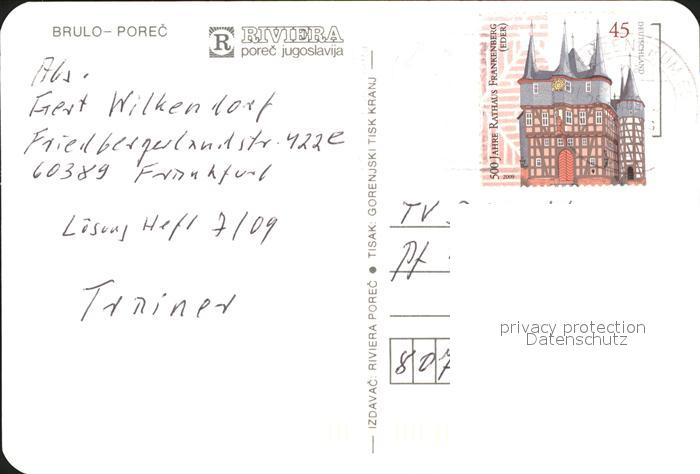 BRULO – POREČ
R RIVIERA
poreč jugoslavija
Abs.
Gert Wilkendorf
Friedbergerlandstr. 422e
60389 Frankfurt
Lösung Heft 7/09
Trainer
IZDAVAČ: RIVIERA POREČ ● TISAK: GORENJSKI TISK KRANJ
500 JAHRE RATHAUS FRANKENBERG
(EDER)
45
DEUTSCHLAND
2009
TV
Pf
807
privacy protection
Datenschutz